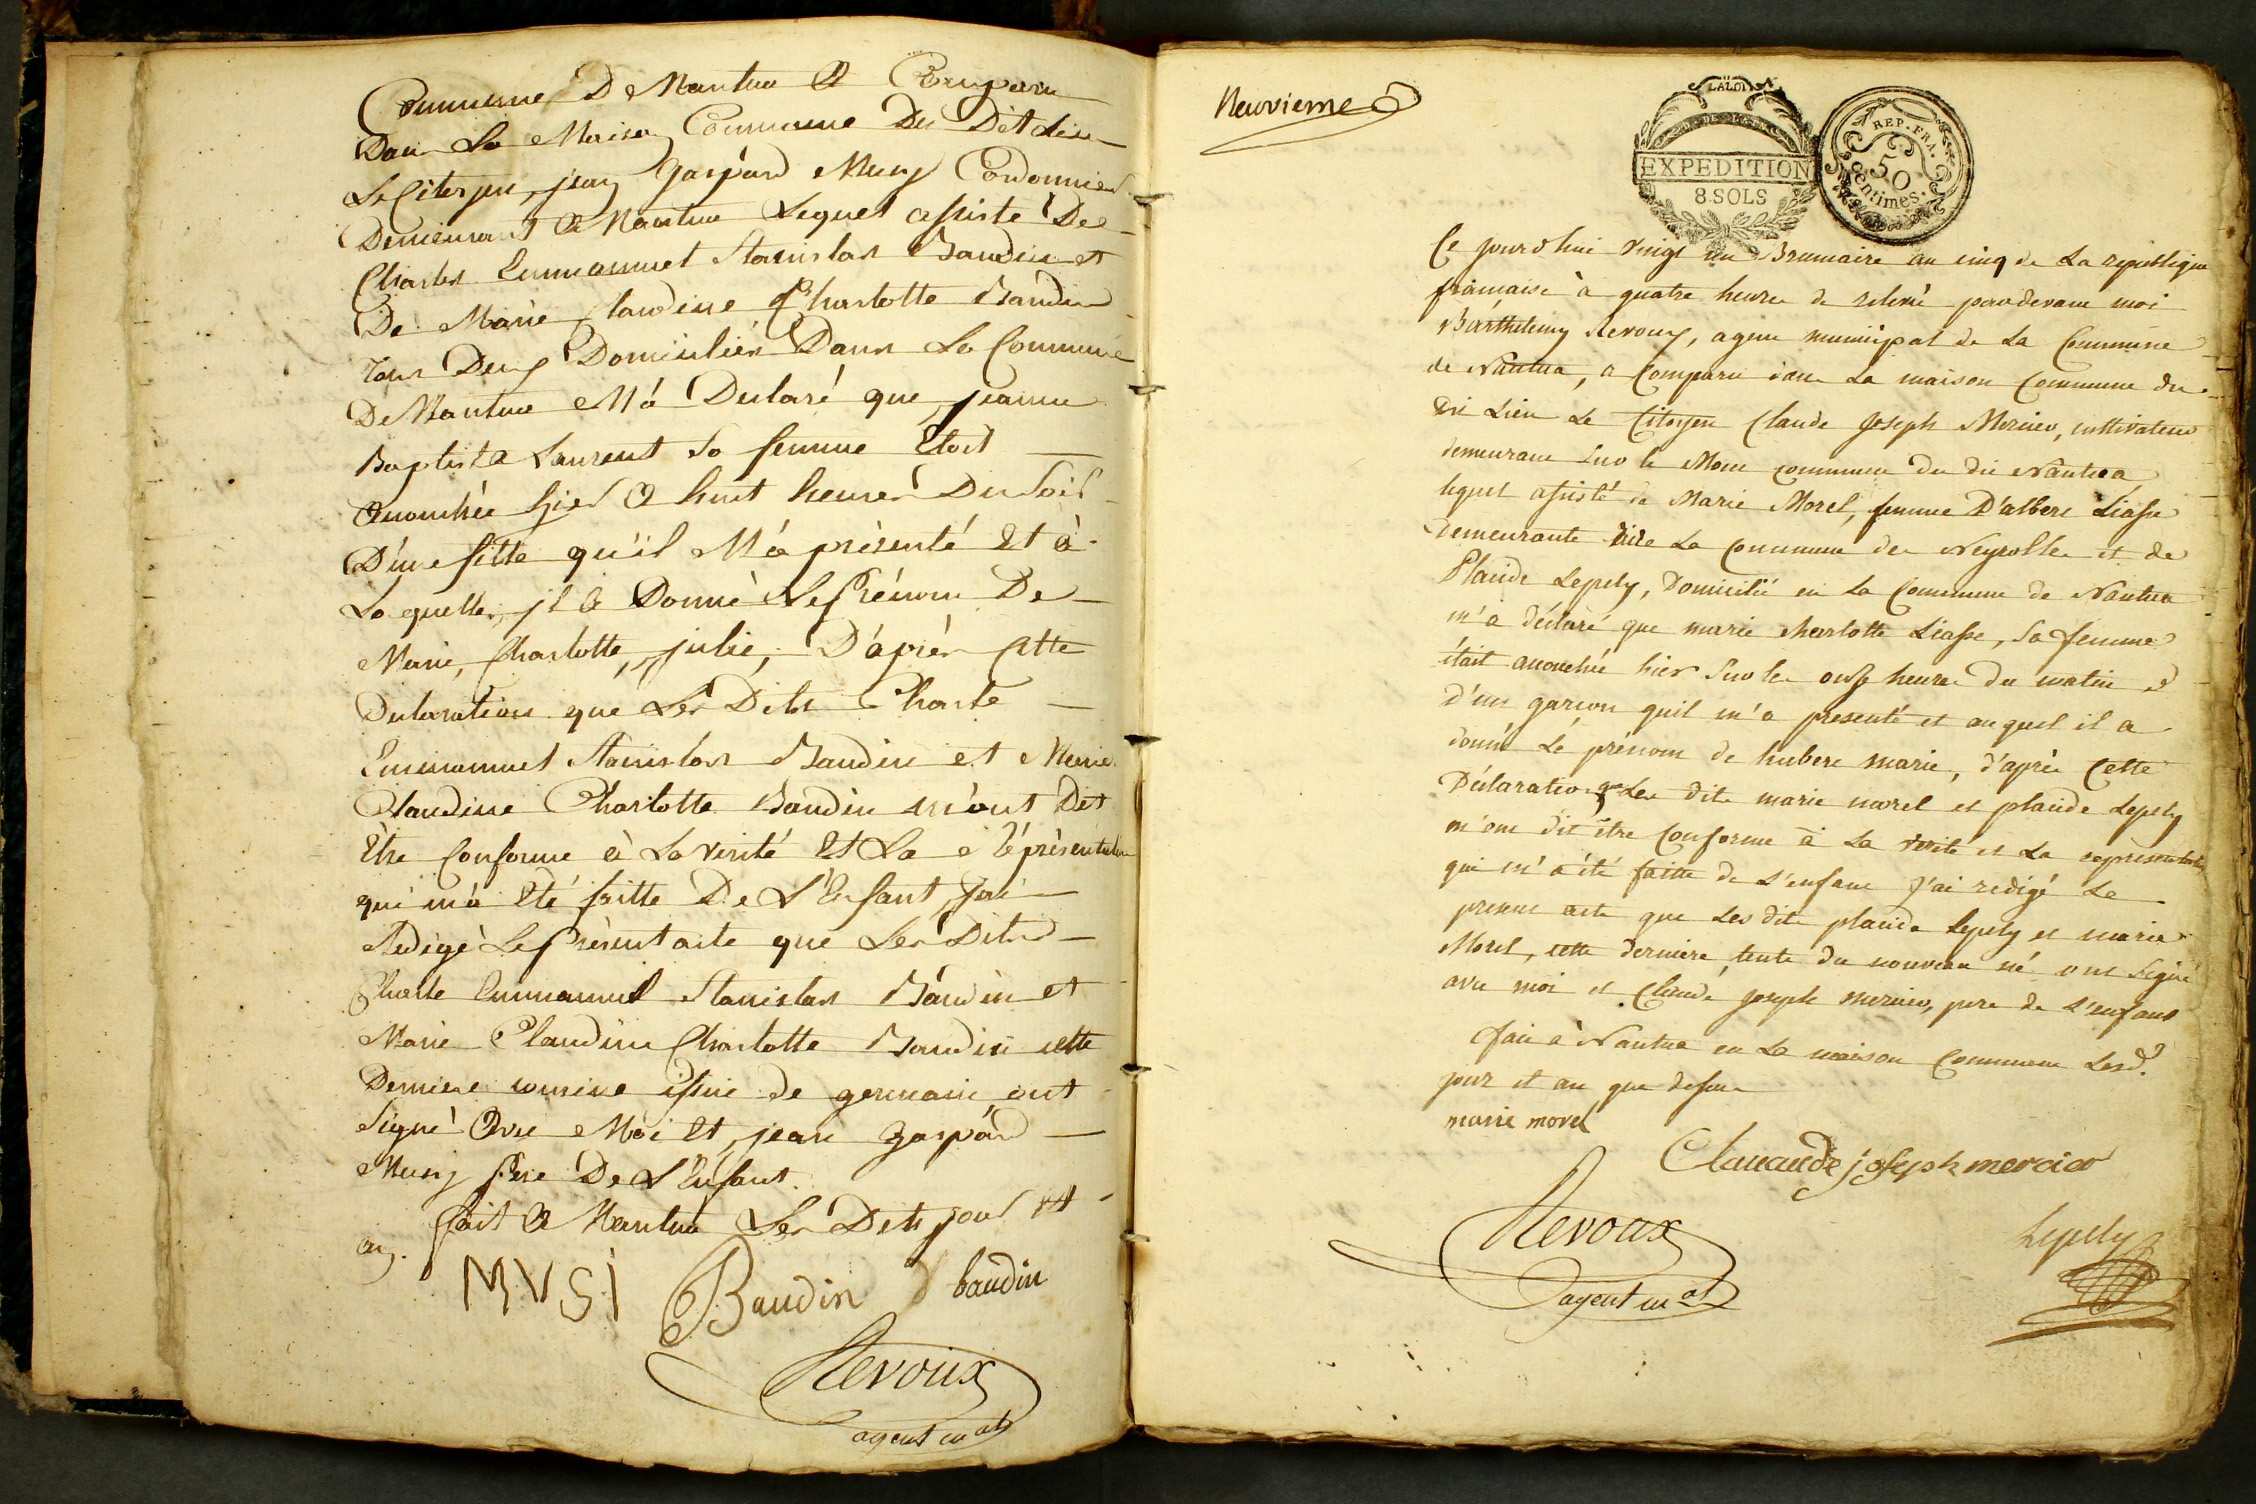 Commune De Nantua A Comparu
Dans La Maison Commune Du Dit Lieu
Le Citoyen jean gaspard Musy Cordonnier
Demeurant A Nantua Lequel assisté De
Charles Emmanuel Stanislas Baudin et
De Marie Claudine Charlotte Baudin
Tous Deux Domiciliés Dans La Commune
De Nantua M'á Declaré que jeanne
Baptista Laurent Sa femme Etoit
accouchée hier A huit heures Du Soir
D'une fille qu'il M'á présenté Et à
La quelle, jl A Donné Le Prénom De
Marie, Charlotte, julie, D'áprés Cette
Declaration que Les Dits Charle
Emmanuel Stanislas Baudin et Marie
Claudine Charlotte Baudin m'ont Dit
Etre Conforme à La vérité Et La Répresentation
qui m'á Eté faitte De L'Enfant, jai
Redigé Le Présent acte que Les Dits
Charle Emmanuel Stanislas Baudin et
Marie Claudine Charlotte Baudin cette
Derniere cousine issue de germain ont
Signé Avec Moi Et jean gaspárd
Musy Pere De L'Enfant.
fait A Nantua Les Dits jour Et
an.
MVSI Baudin baudin
Revoux
agent m.al
Neuvieme
LA LOI
EXPEDITION
8 SOLS
REP. FRA.
50
Centimes
Ce jourdhui vingt un Brumaire an cinq de La republique
française à quatre heures de relevé pardevant moi
Barthélemy Revoux, agent municipal de La Commune
de Nantua, a Comparu dans La maison Commune du
dit Lieu Le Citoyen Claude Joseph Mercier, cultivateur
demeurant sur le Mont commune du dit Nantua
lequel assisté de Marie Morel, femme D'albert Liasse
Demeurante La Commune des Neyrolles et de
Plaude Lepely, Domicilié en La Commune de Nantua
m'a déclaré que marie charlotte Liasse, Sa femme
était accouchée hier Sur les onze heures du matin
d'un garcon quil m'a presenté et auquel il a
donné Le prénom de hubert marie, d'après Cette
Déclaration que Les dits marie morel et plaude Lepely
m'ont dit être Conforme à La verité et La representation
qui m'a été faitte de L'enfant J'ai redigé Le
present acte que Les dits plaude Lepely et marie
Morel, cette derniere tente du nouveau né ont Signé
avec moi et Claude joseph mercier, pere de L'enfant
fait à Nantua en La maison Commune Lesd.
jour et an que dessus
marie morel
Clauaude joseph mercier
Revoux
agent m.al
Lepely